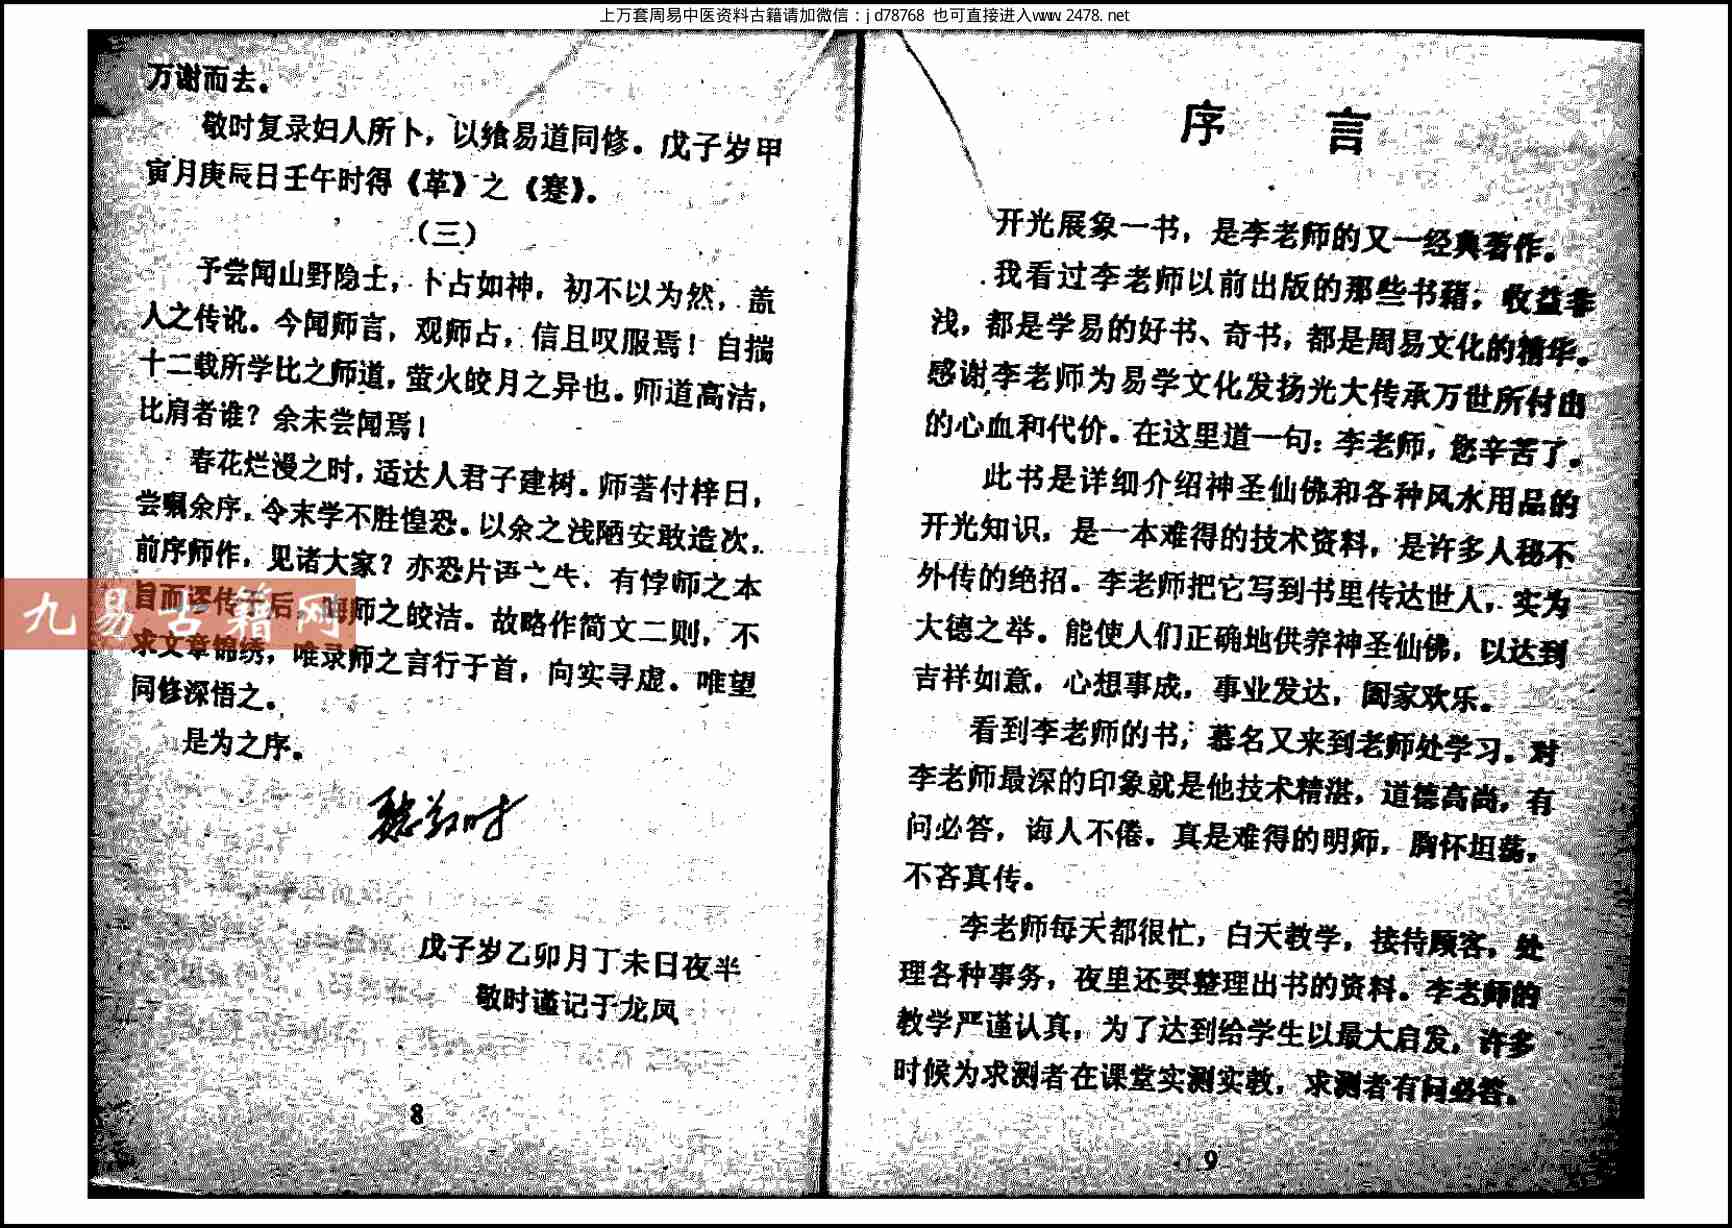 上万套周易中医资料古籍请加微信：jd78768 也可直接进入www.2478.net
万谢而去。
敬时复录妇人所卜，以飨易道同修。戊子岁甲
寅月庚辰日壬午时得《革》之《蹇》。
（三）
予尝闻山野隐士，卜占如神，初不以为然，盖
人之传说。今闻师言，观师占，信且叹服焉！自揣
十二载所学比之师道，萤火皎月之异也。师道高洁，
比肩者谁？余未尝闻焉！
春花烂漫之时，适达人君子建树。师著付梓日，
尝嘱余序，令末学不胜惶恐。以余之浅陋安敢造次，
前序师作，见诸大家？亦恐片语之失，有悖师之本
旨而谬传于后，晦师之皎洁。故略作简文二则，不
求文章锦绣，唯录师之言行于首，向实寻虚。唯望
同修深悟之。
是为之序。
戊子岁乙卯月丁未日夜半
敬时谨记于龙凤
8
九易古籍网
序言
开光展象一书，是李老师的又一经典著作。
我看过李老师以前出版的那些书籍，收益非
浅，都是学易的好书、奇书，都是周易文化的精华。
感谢李老师为易学文化发扬光大传承万世所付出
的心血和代价。在这里道一句：李老师，您辛苦了。
此书是详细介绍神圣仙佛和各种风水用品的
开光知识，是一本难得的技术资料，是许多人秘不
外传的绝招。李老师把它写到书里传达世人，实为
大德之举。能使人们正确地供养神圣仙佛，以达到
吉祥如意，心想事成，事业发达，阖家欢乐。
看到李老师的书，慕名又来到老师处学习。对
李老师最深的印象就是他技术精湛，道德高尚，有
问必答，诲人不倦。真是难得的明师，胸怀坦荡，
不吝真传。
李老师每天都很忙，白天教学，接待顾客，处
理各种事务，夜里还要整理出书的资料。李老师的
教学严谨认真，为了达到给学生以最大启发，许多
时候为求测者在课堂实测实教，求测者有问必答。
9